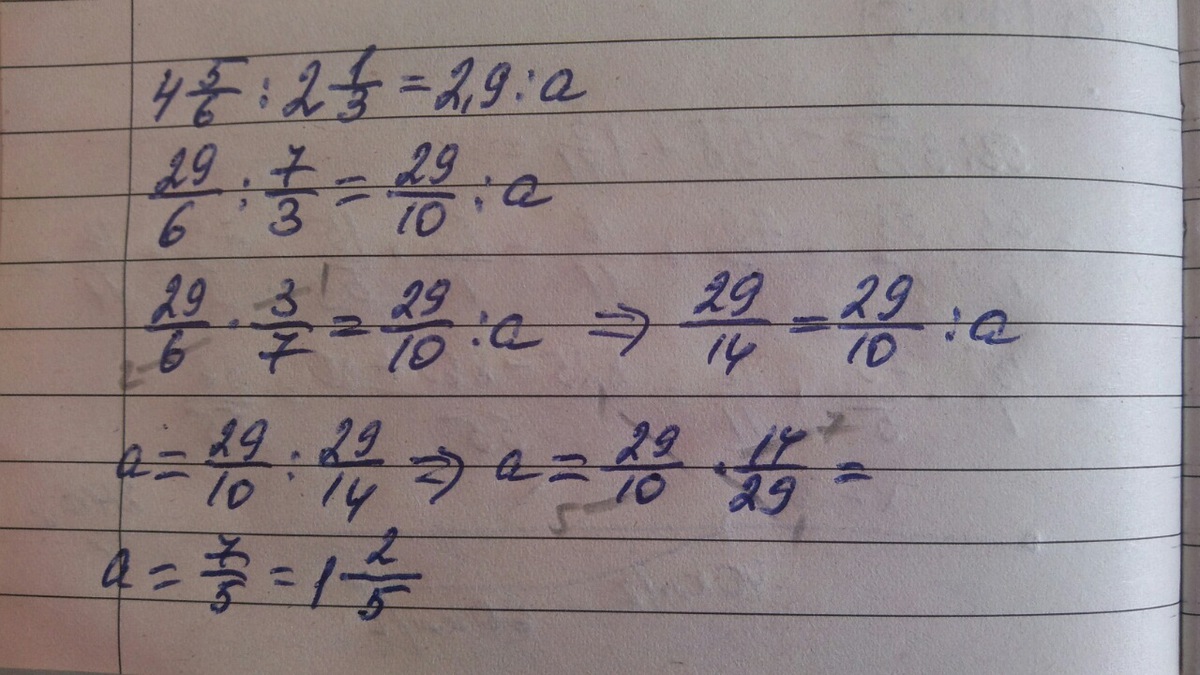 4 5/6 : 2 1/3 = 2,9 : a
29/6 : 7/3 = 29/10 : a
29/6 · 3/7 = 29/10 : a ⇒ 29/14 = 29/10 : a
a = 29/10 : 29/14 ⇒ a = 29/10 · 14/29 =
a = 7/5 = 1 2/5